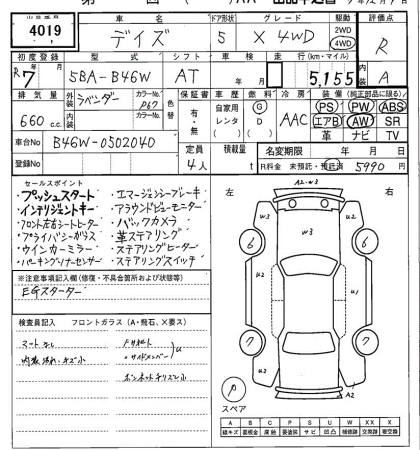 4019
車名 ドア形状 グレード 駆動 評価点
デイズ 5 X 4WD 2WD 4WD R
初度登録 型式 シフト 車検 走行(km・マイル) 内装
R7 5BA-B46W AT 年 月 5,155 A
排気量 外装 カラーNo. 色替 保証書 車歴 燃料 冷房 装備 (純正部品に限る)
660 c.c. ラベンダー カラーNo. 有・無 自家用 レンタ G D AAC PS PW ABS
エアB AW SR
革 ナビ TV
車台No B46W-0502040 定員 4人 積載量 t 名変期限 年 月 日
登録No R料金 未預託・預託済 5990
セールスポイント
・プッシュスタート ・エマージェンシーブレーキ
・インテリジェントキー ・アラウンドビューモニター
・フロント左右シートヒーター ・バックカメラ
・プライバシーガラス ・革ステアリング
・ウインカーミラー ・ステアリングヒーター
・パーキングソナーセンサー ・ステアリングスイッチ
※注意事項記入欄(修復・不具合箇所および状態等)
EGスターター
検査員記入 フロントガラス(A・飛石、X要ス)
マットなし
・サイドメンバー
左 右
A2・W3
W3 W3 U2
6 6
U2 U2 U1
7 7
U2 U2
A2
スペア
A B C P S U W XX X
線キズ 要板金 腐蝕 要塗装 サビ 凹凸 補修跡 交換跡 要交換